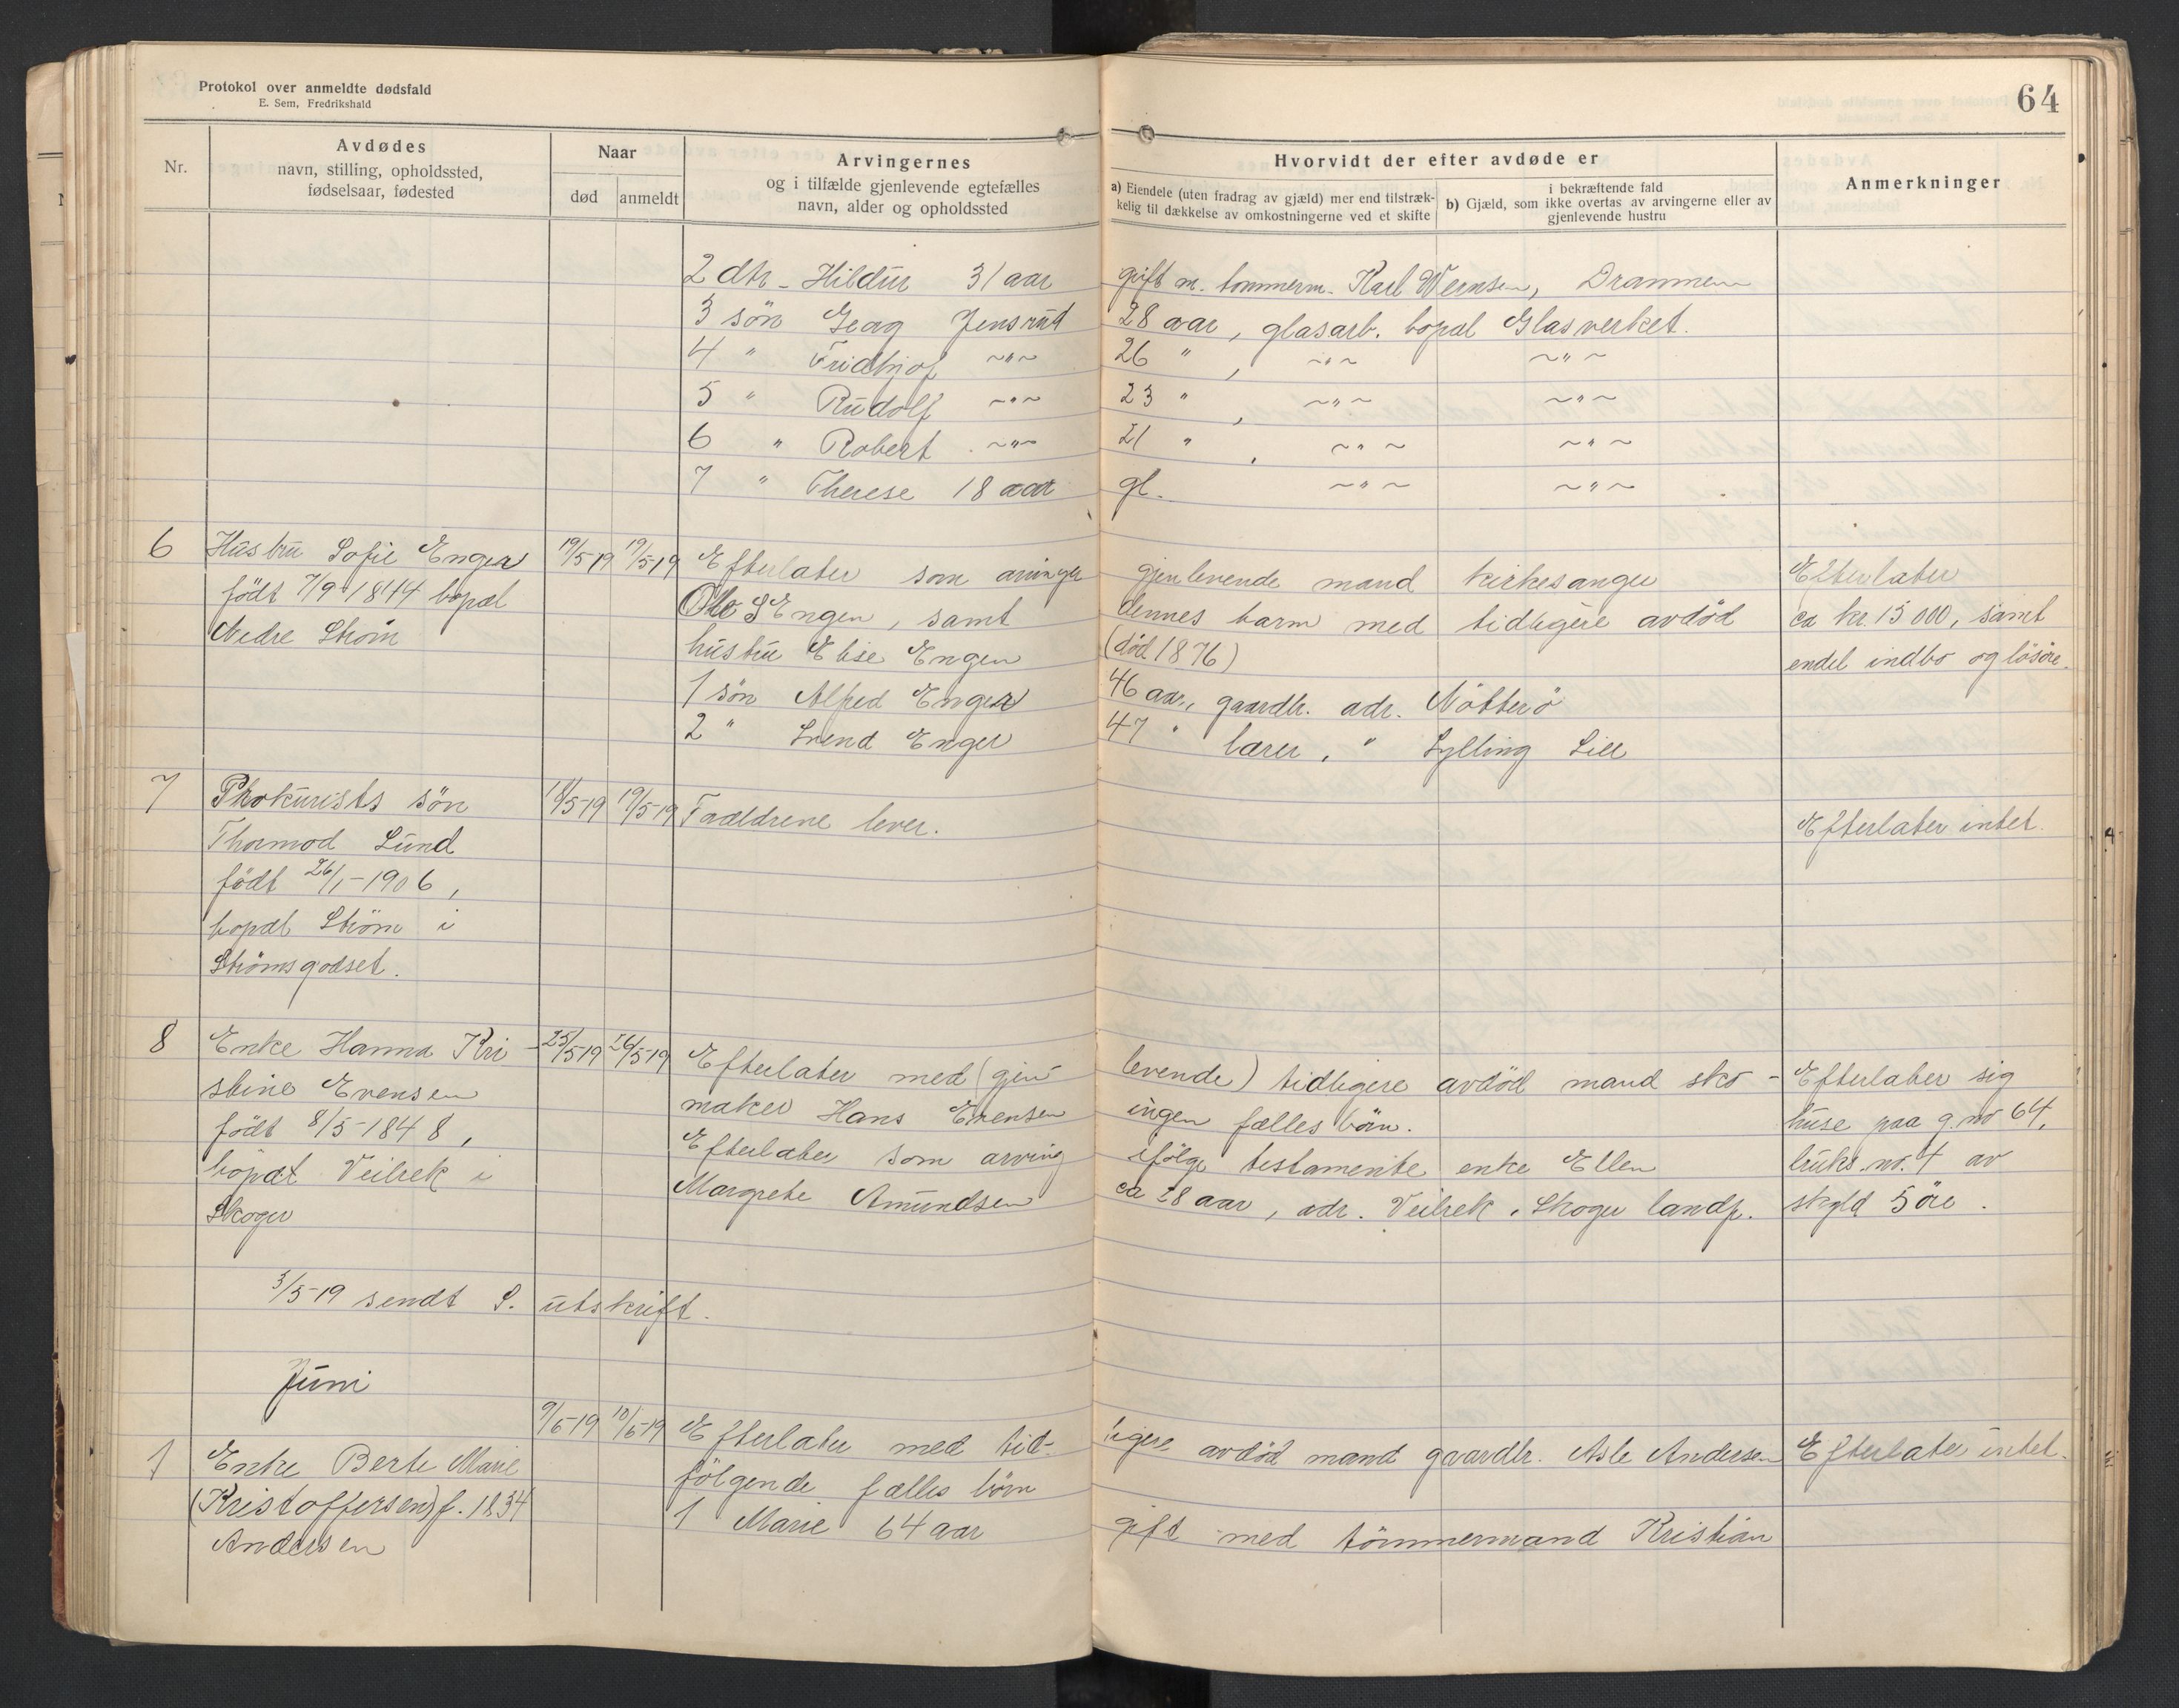 Protokol over anmeldte dødsfald
E. Sem, Fredrikshald
64
Nr.
Avdødes
navn, stilling, opholdssted,
fødselsaar, fødested
Naar
død
anmeldt
Arvingernes
og i tilfælde gjenlevende egtefælles
navn, alder og opholdssted
Hvorvidt der efter avdøde er
a) Eiendele (uten fradrag av gjæld) mer end tilstræk-
kelig til dækkelse av omkostningerne ved et skifte
i bekræftende fald
b) Gjæld, som ikke overtas av arvingerne eller av
gjenlevende hustru
Anmerkninger
2 dtr - Hildur 31 aar gift m. tømmerm. Karl Wernsen, Drammen
3 søn Georg Jensrud 28 aar, glasarb. bopæl Glasverket.
4 " Fridthjof ~"~ 26 " , ~"~ ~"~
5 " Rudolf ~"~ 23 " , ~"~ ~"~
6 " Robert ~"~ 21 " , ~"~ ~"~
7 " Therese 18 aar gl. ~"~ ~"~
6 Hustru Sofie Enger 19/5-19 19/5-19 Efterlater som arvinger gjenlevende mand kirkesanger Efterlater
født 7/9 1844 bopæl Ole S Engen, samt dennes barn med tidligere avdød ca kr. 15 000, samt
Nedre Strøm hustru Elise Engen (død 1876) endel indbo og løsøre.
1 søn Alfred Enger 46 aar, gaardbr. adr. Nøtterø
2 " Svend Enger 47 " lærer, " Sylling Lier
7 Prokurists søn 18/5-19 19/5-19 Forældrene lever. Efterlater intet.
Thormod Lund
født 26/1-1906,
bopæl Strøm i
Strømsgodset.
8 Enke Hanna Kri- 25/5-19 26/5-19 Efterlater med (gjen- levende) tidligere avdød mand sko- Efterlater sig
stine Evensen maker Hans Evensen ingen fælles børn. huse paa g. no 64,
født 8/5-1848, Efterlater som arving ifølge testamente enke Ellen bruks. nr. 4 av
bopæl Veilrek i Margrete Amundsen ca 28 aar, adr. Veilrek, Skoger landp. skyld 5 øre.
Skoger
3/5-19 sendt S. utskrift.
Juni
1 Enke Berte Marie 9/6-19 10/6-19 Efterlater med tid- ligere avdød mand gaardbr. Asle Andersen Efterlater intet.
(Kristoffersen) f. 1834 følgende fælles børn
Andersen 1 Marie 64 aar gift med tømmermand Kristian